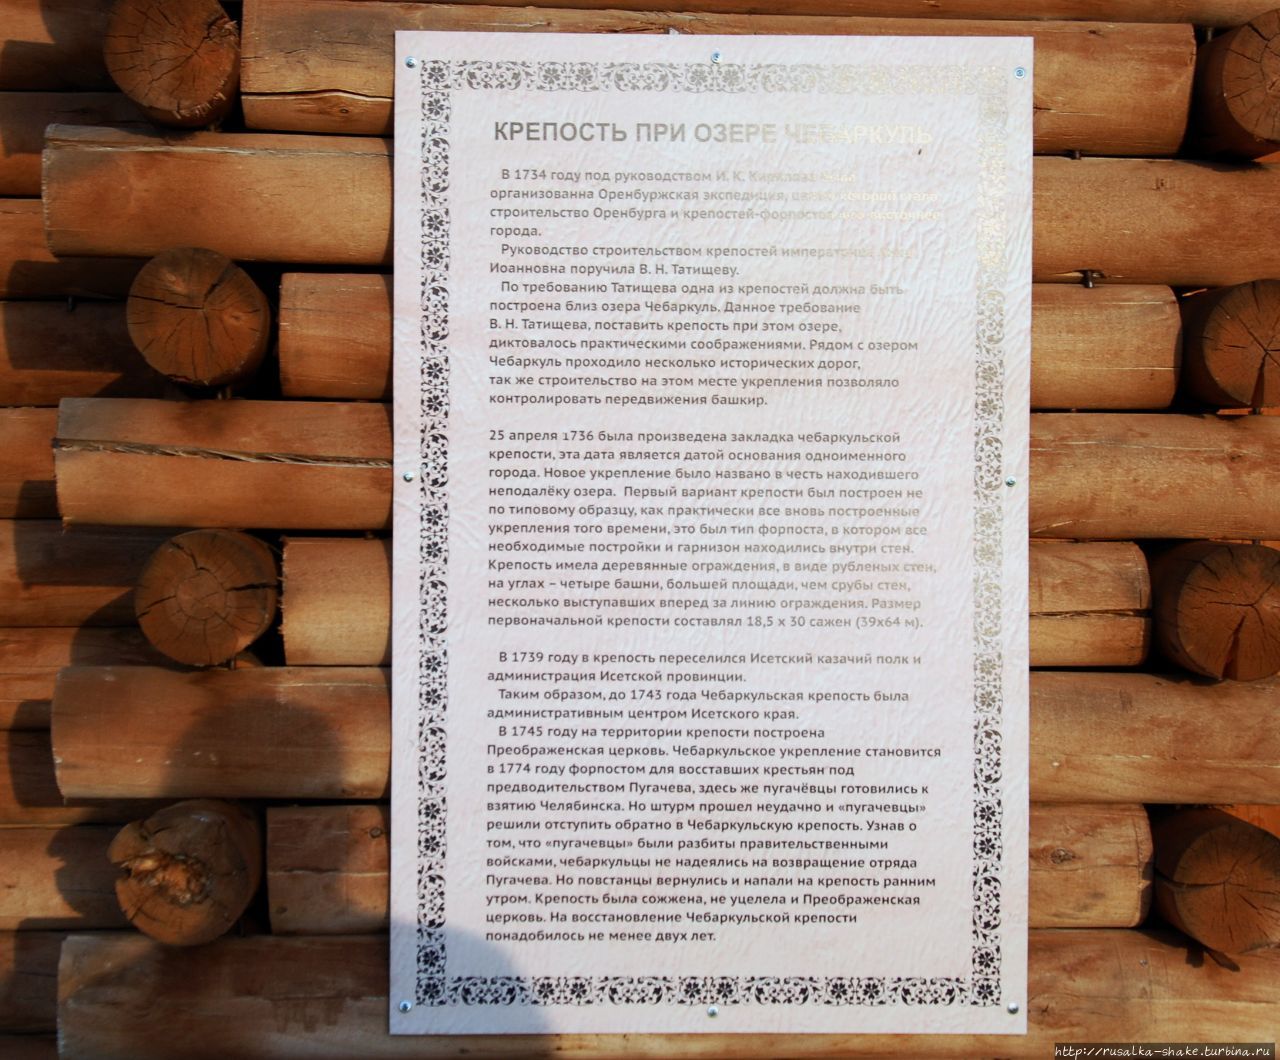 КРЕПОСТЬ ПРИ ОЗЕРЕ ЧЕБАРКУЛЬ
В 1734 году под руководством И. К. Кирилова была
организованна Оренбуржская экспедиция, целью которой стало
строительство Оренбурга и крепостей-форпостов
города.
Руководство строительством крепостей императрица Анна
Иоанновна поручила В. Н. Татищеву.
По требованию Татищева одна из крепостей должна быть
построена близ озера Чебаркуль. Данное требование
В. Н. Татищева, поставить крепость при этом озере,
диктовалось практическими соображениями. Рядом с озером
Чебаркуль проходило несколько исторических дорог,
так же строительство на этом месте укрепления позволяло
контролировать передвижения башкир.
25 апреля 1736 была произведена закладка чебаркульской
крепости, эта дата является датой основания одноименного
города. Новое укрепление было названо в честь находившего
неподалёку озера. Первый вариант крепости был построен не
по типовому образцу, как практически все вновь построенные
укрепления того времени, это был тип форпоста, в котором все
необходимые постройки и гарнизон находились внутри стен.
Крепость имела деревянные ограждения, в виде рубленых стен,
на углах – четыре башни, большей площади, чем срубы стен,
несколько выступавших вперед за линию ограждения. Размер
первоначальной крепости составлял 18,5 х 30 сажен (39х64 м).
В 1739 году в крепость переселился Исетский казачий полк и
администрация Исетской провинции.
Таким образом, до 1743 года Чебаркульская крепость была
административным центром Исетского края.
В 1745 году на территории крепости построена
Преображенская церковь. Чебаркульское укрепление становится
в 1774 году форпостом для восставших крестьян под
предводительством Пугачева, здесь же пугачёвцы готовились к
взятию Челябинска. Но штурм прошел неудачно и «пугачевцы»
решили отступить обратно в Чебаркульскую крепость. Узнав о
том, что «пугачевцы» были разбиты правительственными
войсками, чебаркульцы не надеялись на возвращение отряда
Пугачева. Но повстанцы вернулись и напали на крепость ранним
утром. Крепость была сожжена, не уцелела и Преображенская
церковь. На восстановление Чебаркульской крепости
понадобилось не менее двух лет.
http://rusalka-shake.turbina.ru